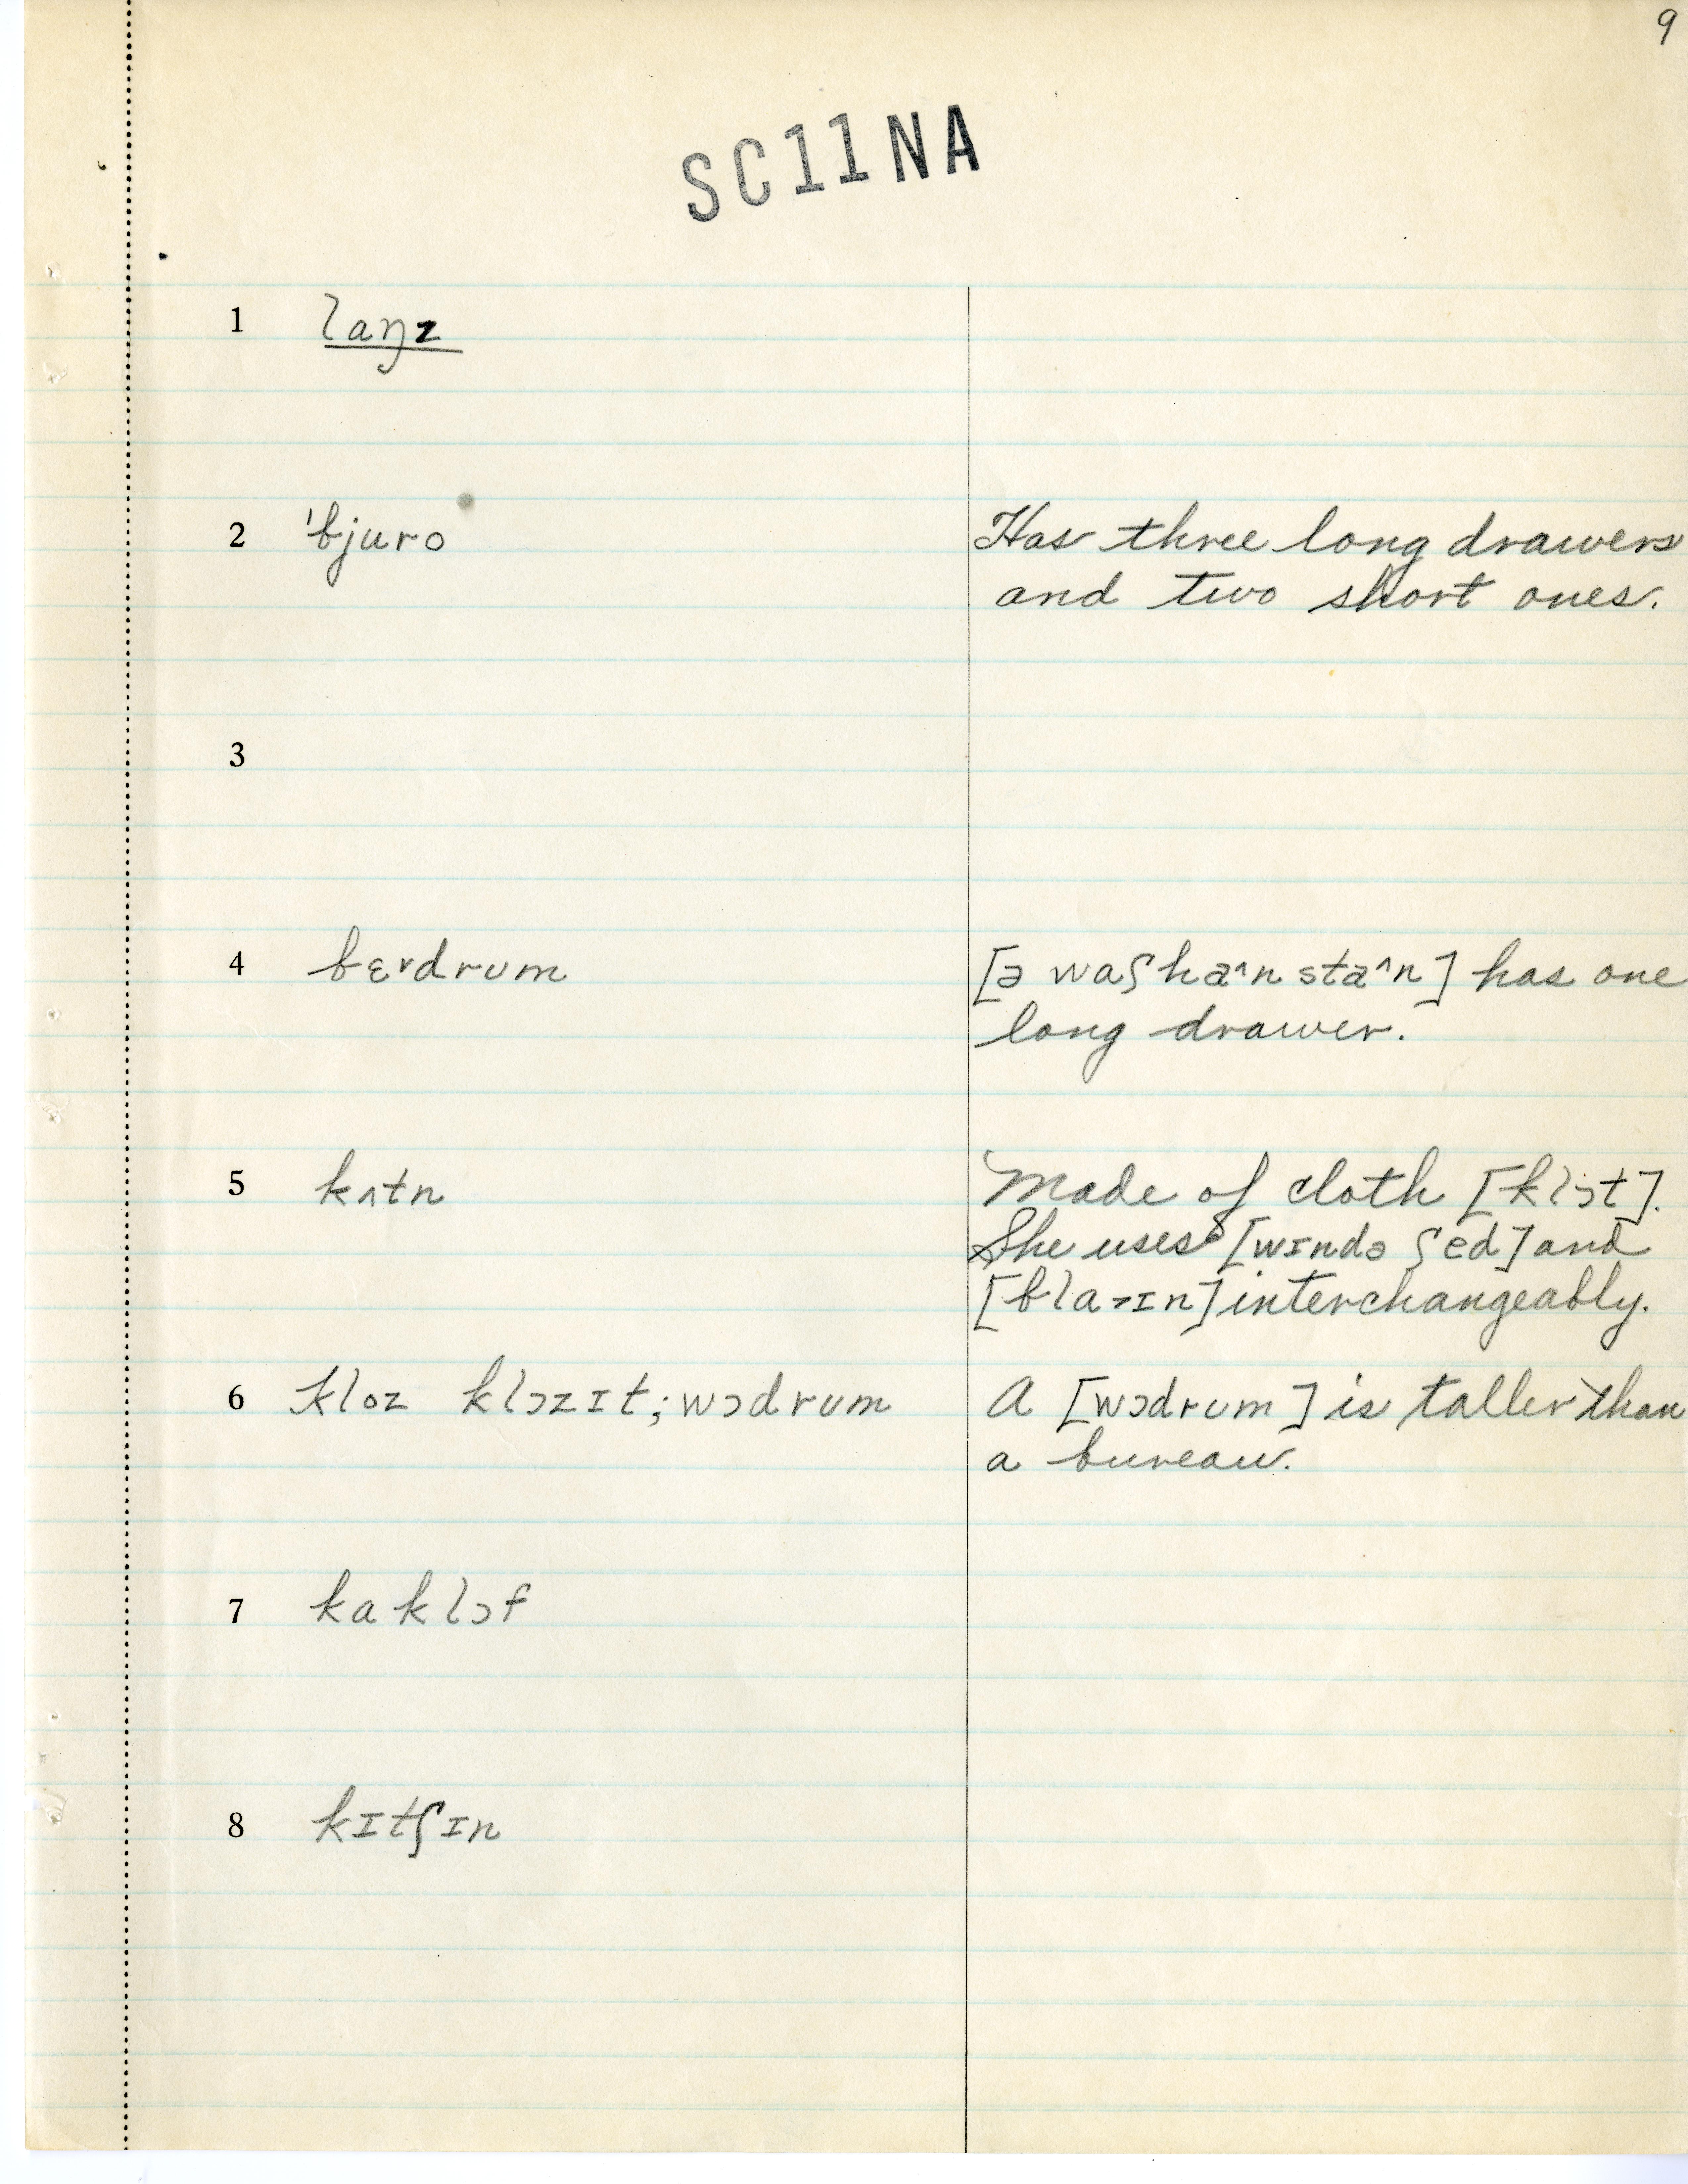 9
SC11NA
1 laŋz
2 'bjuro
Has three long drawers
and two short ones.
3
4 bɛ˅drum
[ə waʃha˄n sta˄n] has one
long drawer.
5 kʌtn
Made of cloth [klɔt].
She uses [wɪndə ʃed] and
[bla˃ɪn] interchangeably.
6 kloz klɔzɪt; wɔdrum
A [wɔdrum] is taller than
a bureau.
7 kaklɔf
8 kɪtʃɪn